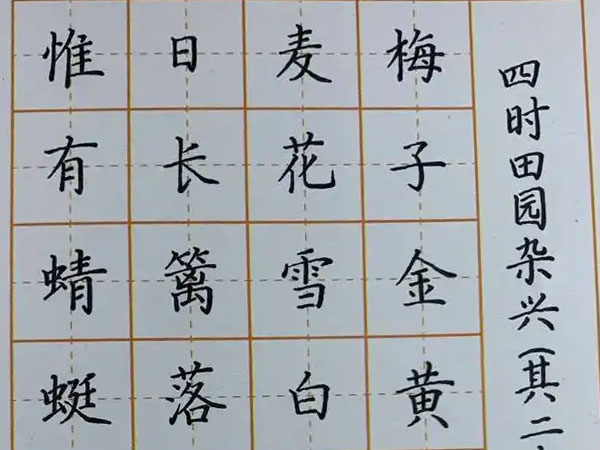 四时田园杂兴(其二
梅子金黄
麦花雪白
日长篱落
惟有蜻蜓